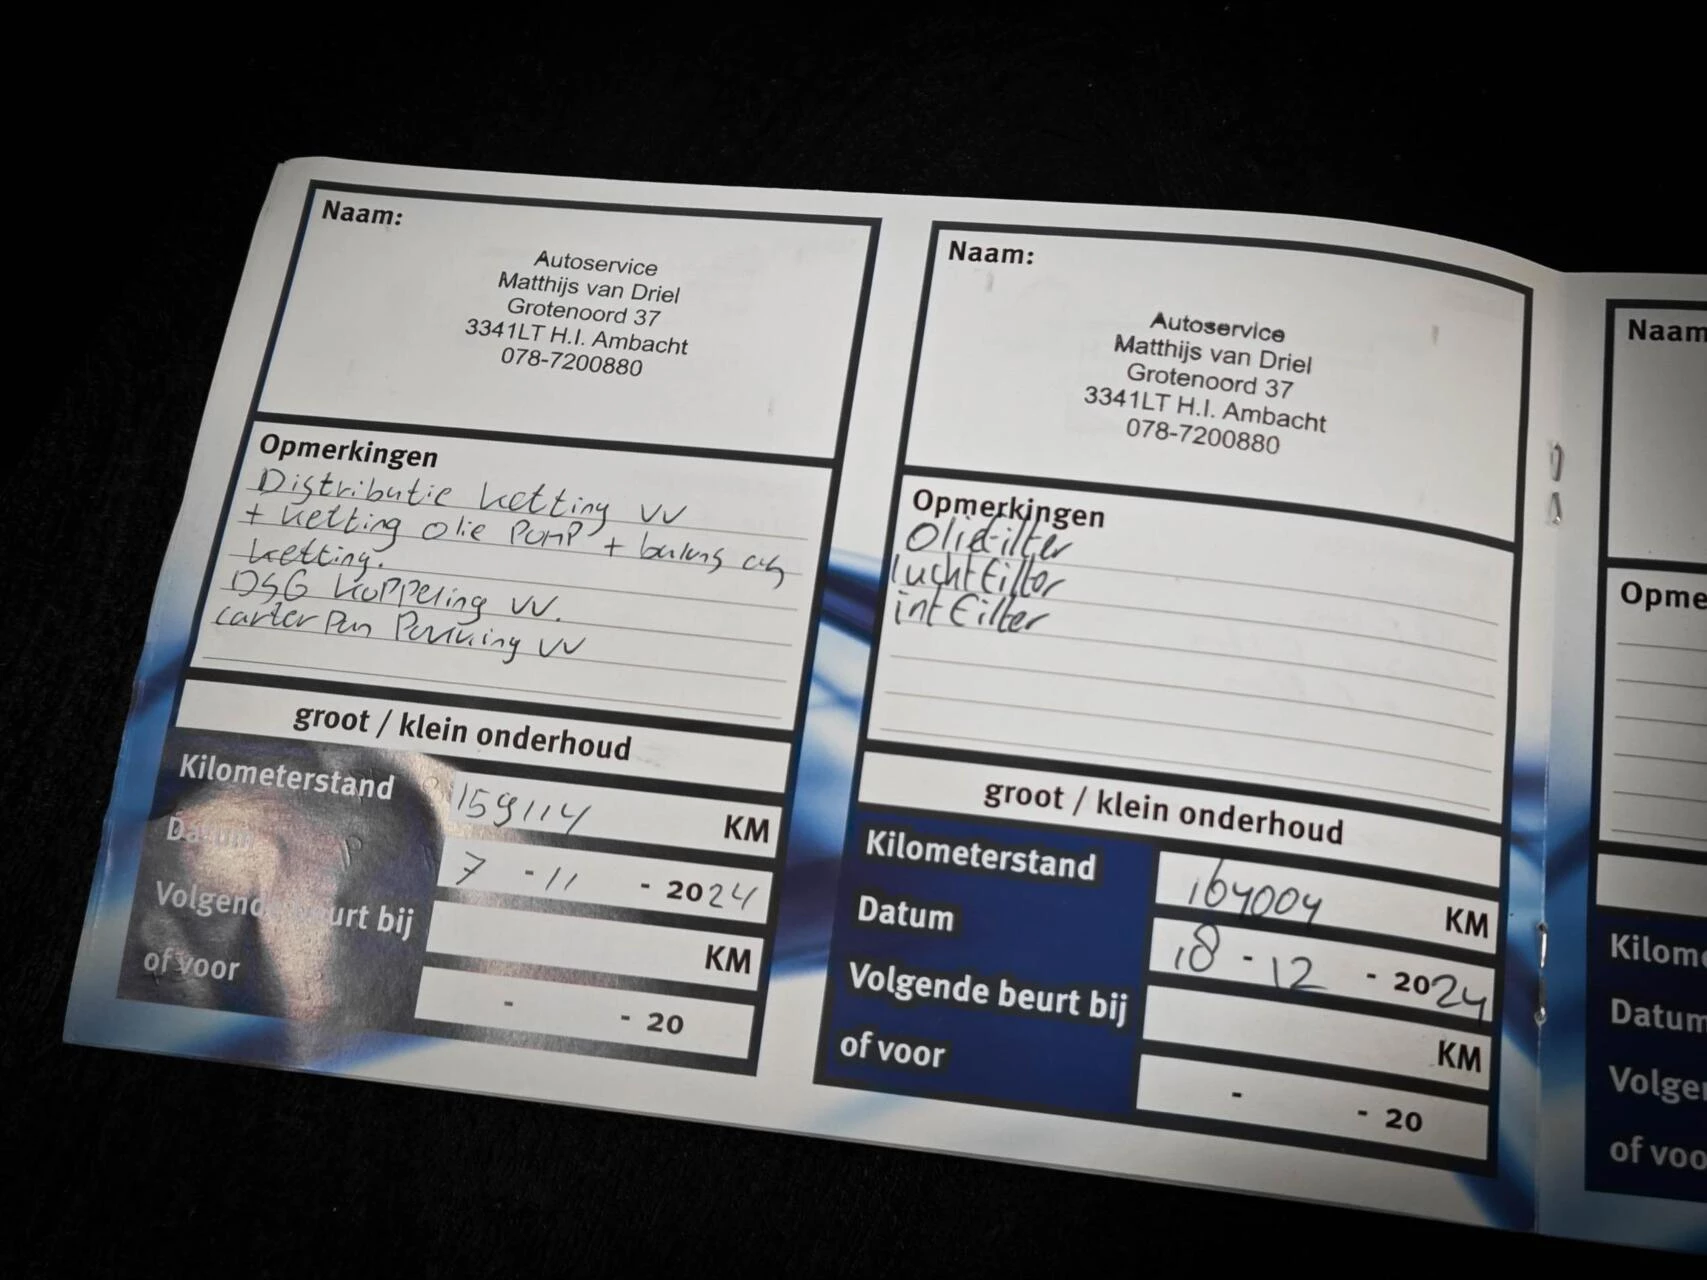 Naam:
Autoservice
Matthijs van Driel
Grotenoord 37
3341LT H.I. Ambacht
078-7200880
Opmerkingen
Distributie ketting VV
+ ketting olie pomp +
ketting.
DSG koppeling VV.
carter pan VV
groot / klein onderhoud
Kilometerstand 159114 KM
Datum 7 - 11 - 2024
Volgende beurt bij KM
of voor - - 20
Naam:
Autoservice
Matthijs van Driel
Grotenoord 37
3341LT H.I. Ambacht
078-7200880
Opmerkingen
Oliefilter
luchtfilter
intfilter
groot / klein onderhoud
Kilometerstand 164004 KM
Datum 18 - 12 - 2024
Volgende beurt bij KM
of voor - - 20
Naam
Opme
Kilom
Datum
Volge
of voo